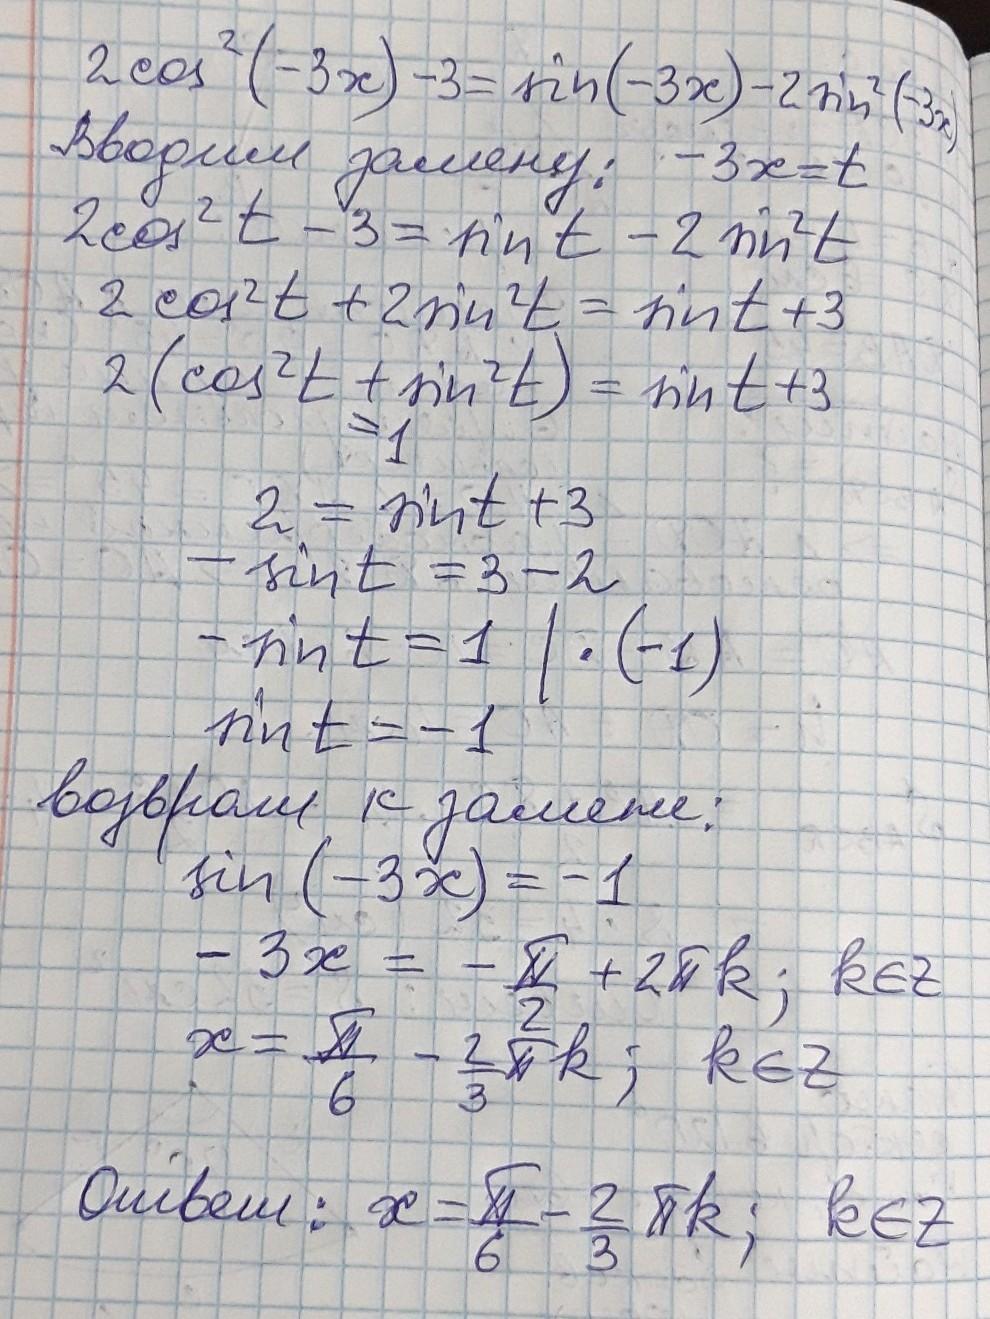 2cos²(-3x)-3 = sin(-3x)-2sin²(-3x)
Вводим замену: -3x=t
2cos²t - 3 = sin t - 2 sin²t
2 cos²t + 2sin²t = sin t + 3
2(cos²t + sin²t) = sin t + 3
=1
2 = sin t + 3
- sin t = 3 - 2
- sin t = 1 | · (-1)
sin t = -1
возврат к замене:
sin (-3x) = -1
- 3x = - π/2 + 2πk; k∈Z
x = π/6 - 2/3 πk; k∈Z
Ответ: x = π/6 - 2/3 πk; k∈Z